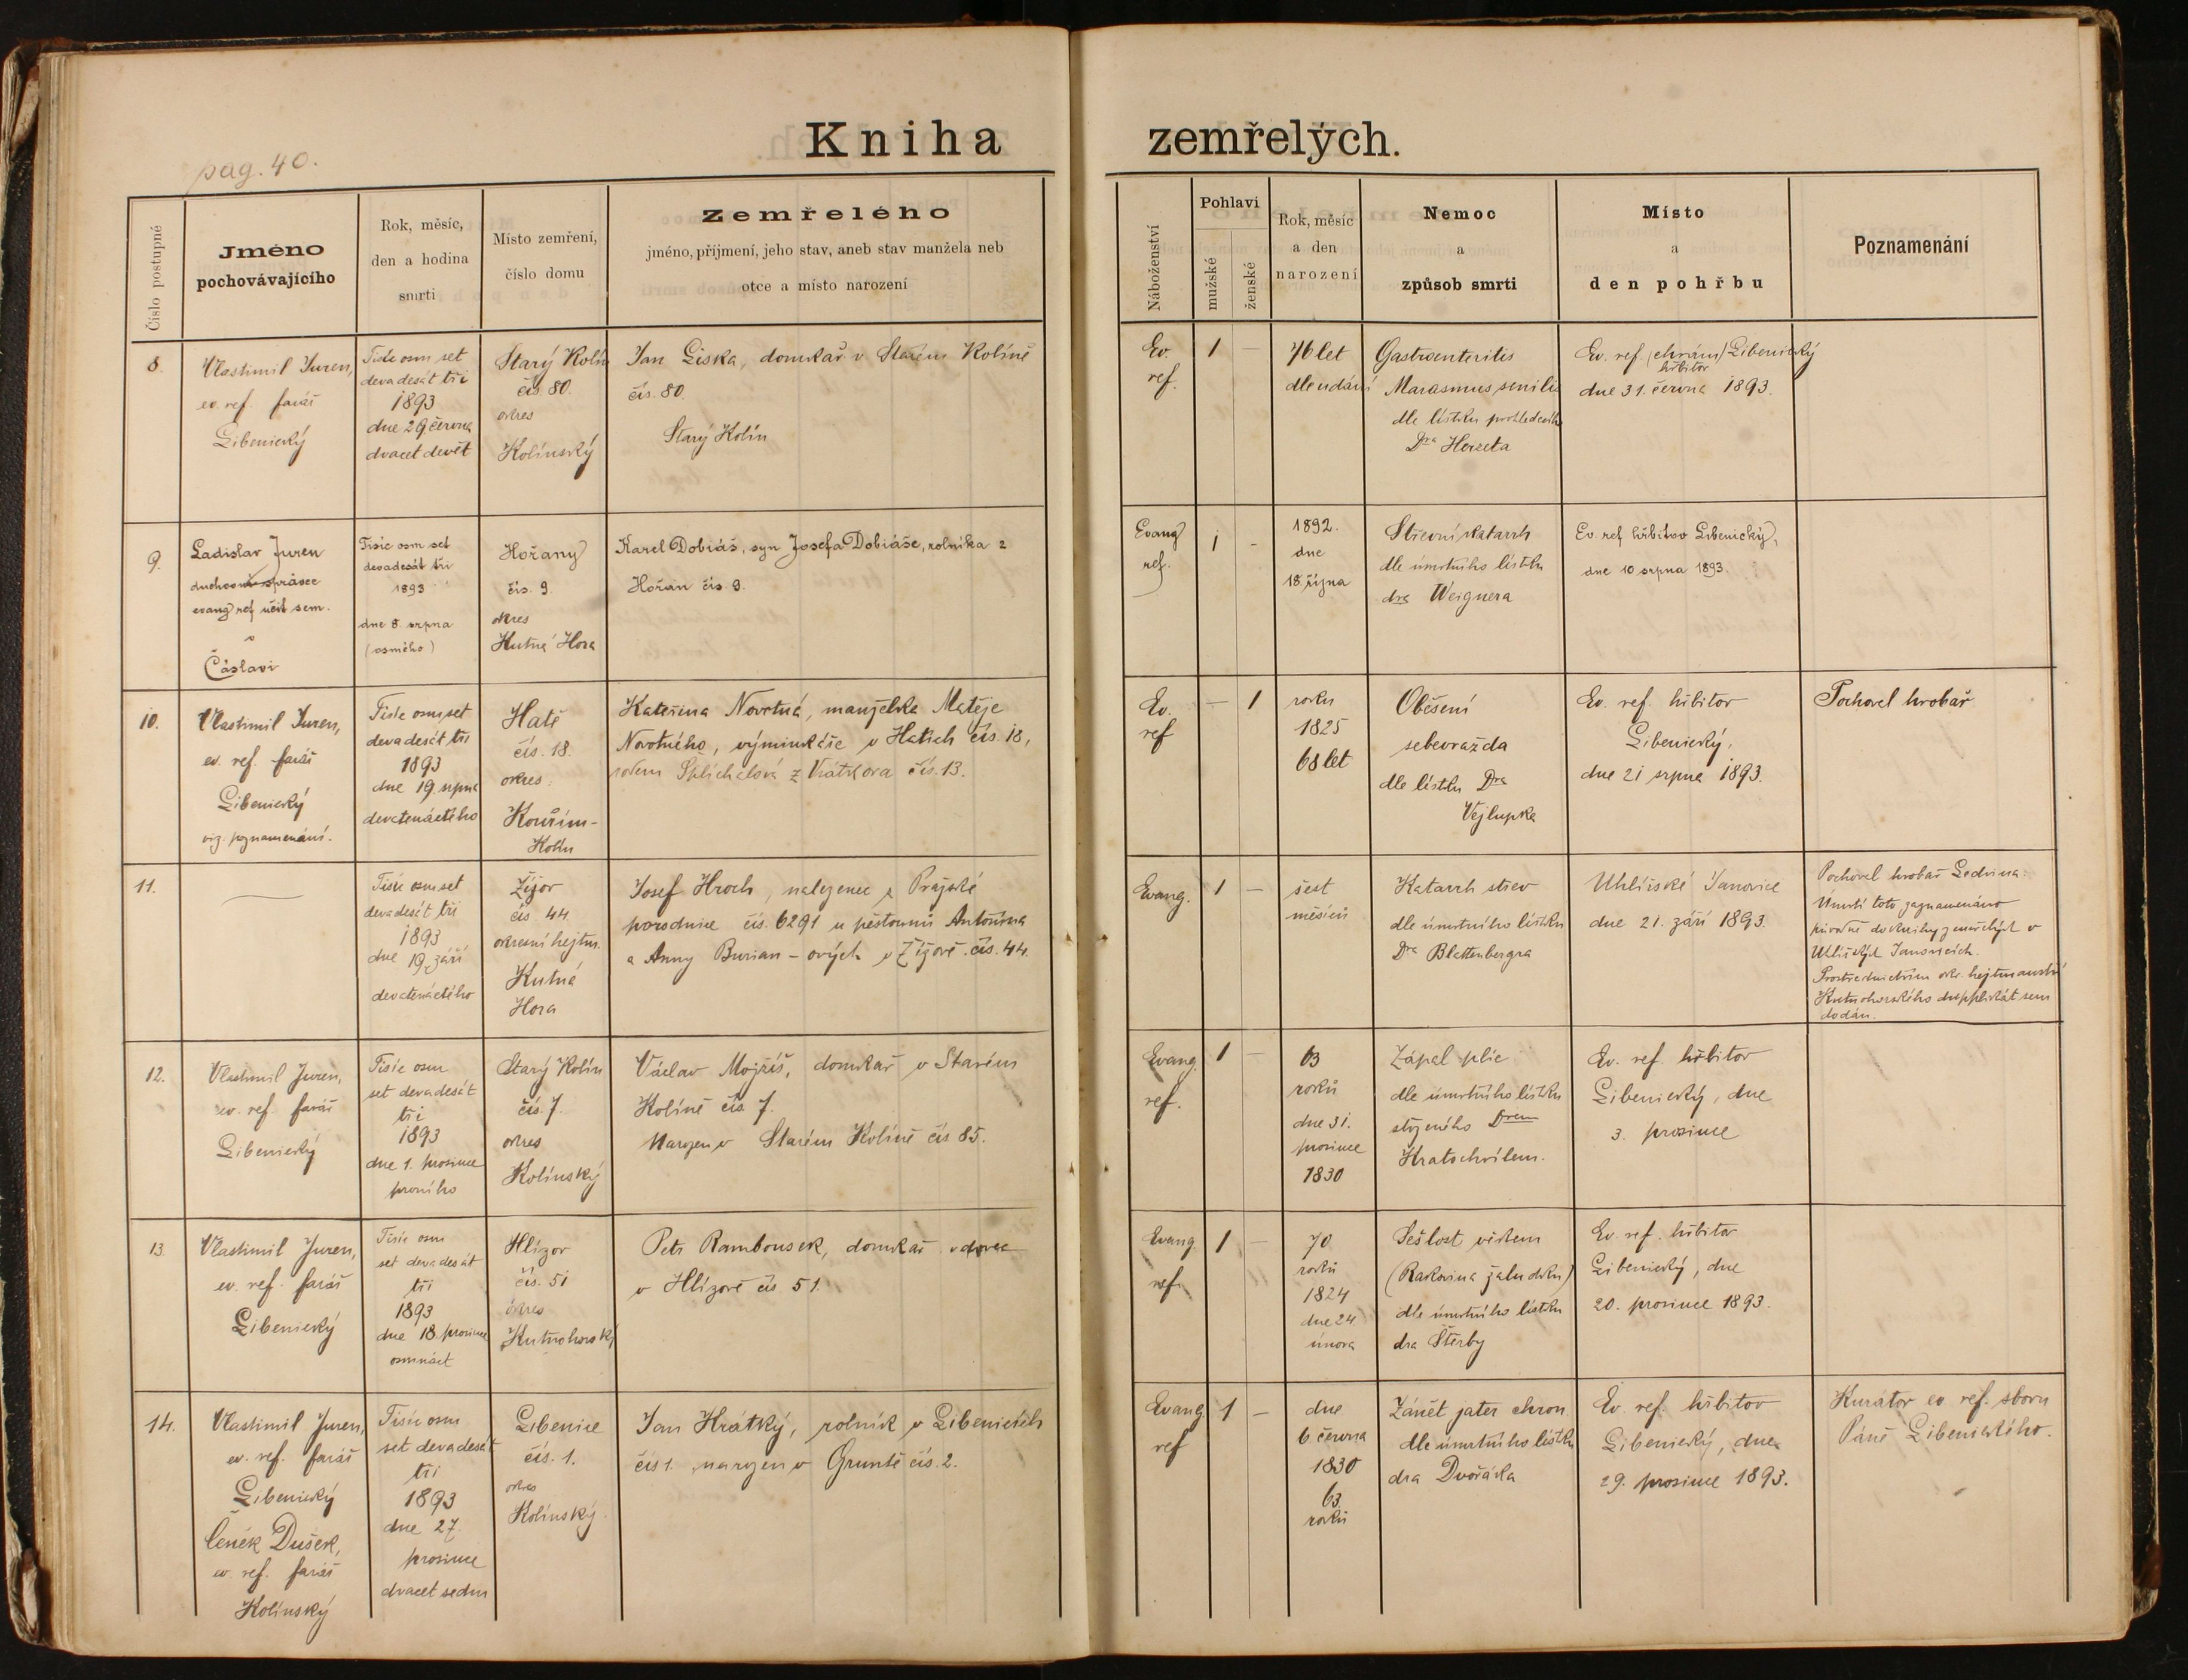 pag. 40.
Kniha zemřelých.
Číslo postupné
Jméno
pochovávajícího
Rok, měsíc,
den a hodina
smrti
Místo zemření,
číslo domu
Zemřelého
jméno, příjmení, jeho stav, aneb stav manžela neb
otce a místo narození
Náboženství
Pohlaví
mužské
ženské
Rok, měsíc
a den
narození
Nemoc
a
způsob smrti
Místo
a
den pohřbu
Poznamenání
8.
Vlastimil Juren,
ev. ref. farář
Libenický
Tisíc osm set
devadesát tři
1893
dne 29 června
dvacet devět
Starý Kolín
čís. 80.
okres
Kolínský
Jan Liska, domkář v Starém Kolíně
čís. 80.
Starý Kolín
Ev.
ref.
1
—
76 let
dle udání
Gastroenteritis
Marasmus senilis
dle lístku
Dra
Ev. ref. (chrám) Libenický
hřbitov
dne 31. června 1893.
9.
Ladislav Juren
duchovní správce
evang ref učit sem.
v
Čáslavi
Tisíc osm set
devadesát tři
1893
dne 8. srpna
(osmého)
Hořany
čís. 9.
okres
Kutná Hora
Karel Dobiáš, syn Josefa Dobiáše, rolníka z
Hořan čís. 9.
Evang
ref.
1
-
1892.
dne
18. října
Střevní katarrh
dle úmrtního lístku
dra Weignera
Ev. ref. hřbitov Libenický,
dne 10 srpna 1893.
10.
Vlastimil Juren,
ev. ref. farář
Libenický
viz. poznamenání.
Tisíc osm set
devadesát tři
1893
dne 19. srpna
devatenáctého
Hatě
čís. 18.
okres
Kouřim-
Kolín
Kateřina Novotná, manželka Matěje
Novotného, výminkáře v Hatích čís. 18,
rodem Splíchalová z čís. 13.
Ev.
ref
—
1
roku
1825
68 let
Oběšení
sebevražda
dle lístku Dra
Vejlupka
Ev. ref. hřbitov
Libenický,
dne 21 srpna 1893.
Pochovel hrobař
11.
Tisíc osm set
devadesát tři
1893
dne 19. září
devatenáctého
Žižov
čís. 44.
okresní hejtm.
Kutná
Hora
Josef Hroch, nalezenec z Pražské
porodnice čís. 6291 u pěstounů Antonína
a Anny Burian-ových v Žižově čís. 44.
Evang.
1
—
šest
měsíců
Katarrh střev
dle úmrtního lístku
Dra Blattenbergra
Uhlířské Janovice
dne 21. září 1893.
Pochovel hrobař Ledvina.
Úmrtí toto zaznamenáno
původně do knihy zemřelých v
Uhlířských Janovicích.
Prostřednictvím okr. hejtmanství
Kutnohorského dupplikát sem
dodán.
12.
Vlastimil Juren,
ev. ref. farář
Libenický
Tisíc osm
set devadesát
tři
1893
dne 1. prosince
prvního
Starý Kolín
čís. 7.
okres
Kolínský
Václav Mojžíš, domkář v Starém
Kolíně čís. 7.
Narozen v Starém Kolíně čís 85.
Evang.
ref.
1
—
63
roků
dne 31.
prosince
1830
Zápal plic
dle úmrtního lístku
Drem
Kratochvílem.
Ev. ref. hřbitov
Libenický, dne
3. prosince
13.
Vlastimil Juren,
ev. ref. farář
Libenický
Tisíc osm
set devadesát
tři
1893
dne 18. prosince
osmnáct
Hlízov
čís. 51
okres
Kutnohorský
Petr Rambousek, domkář vdovec
v Hlízově čís. 51.
Evang.
ref.
1
—
70
roků
1824
dne 24.
února
Sešlost věkem
(Rakovina žaludku)
dle úmrtního lístku
dra Štěrby
Ev. ref. hřbitov
Libenický, dne
20. prosince 1893.
14.
Vlastimil Juren,
ev. ref. farář
Libenický
Čeněk Dušek,
ev. ref. farář
Kolínský
Tisíc osm
set devadesát
tři
1893
dne 27.
prosince
dvacet sedm
Libenice
čís. 1.
okres
Kolínský.
Jan Krátký, rolník v Libenicích
čís 1. narozen v Gruntě čís. 2.
Evang.
ref
1
—
dne
6. června
1830
63.
roků
Zánět jater chron
dle úmrtního lístku
dra Dvořáka
Ev. ref. hřbitov
Libenický, dne
29. prosince 1893.
Kurátor ev. ref. sboru
Páně Libenického.